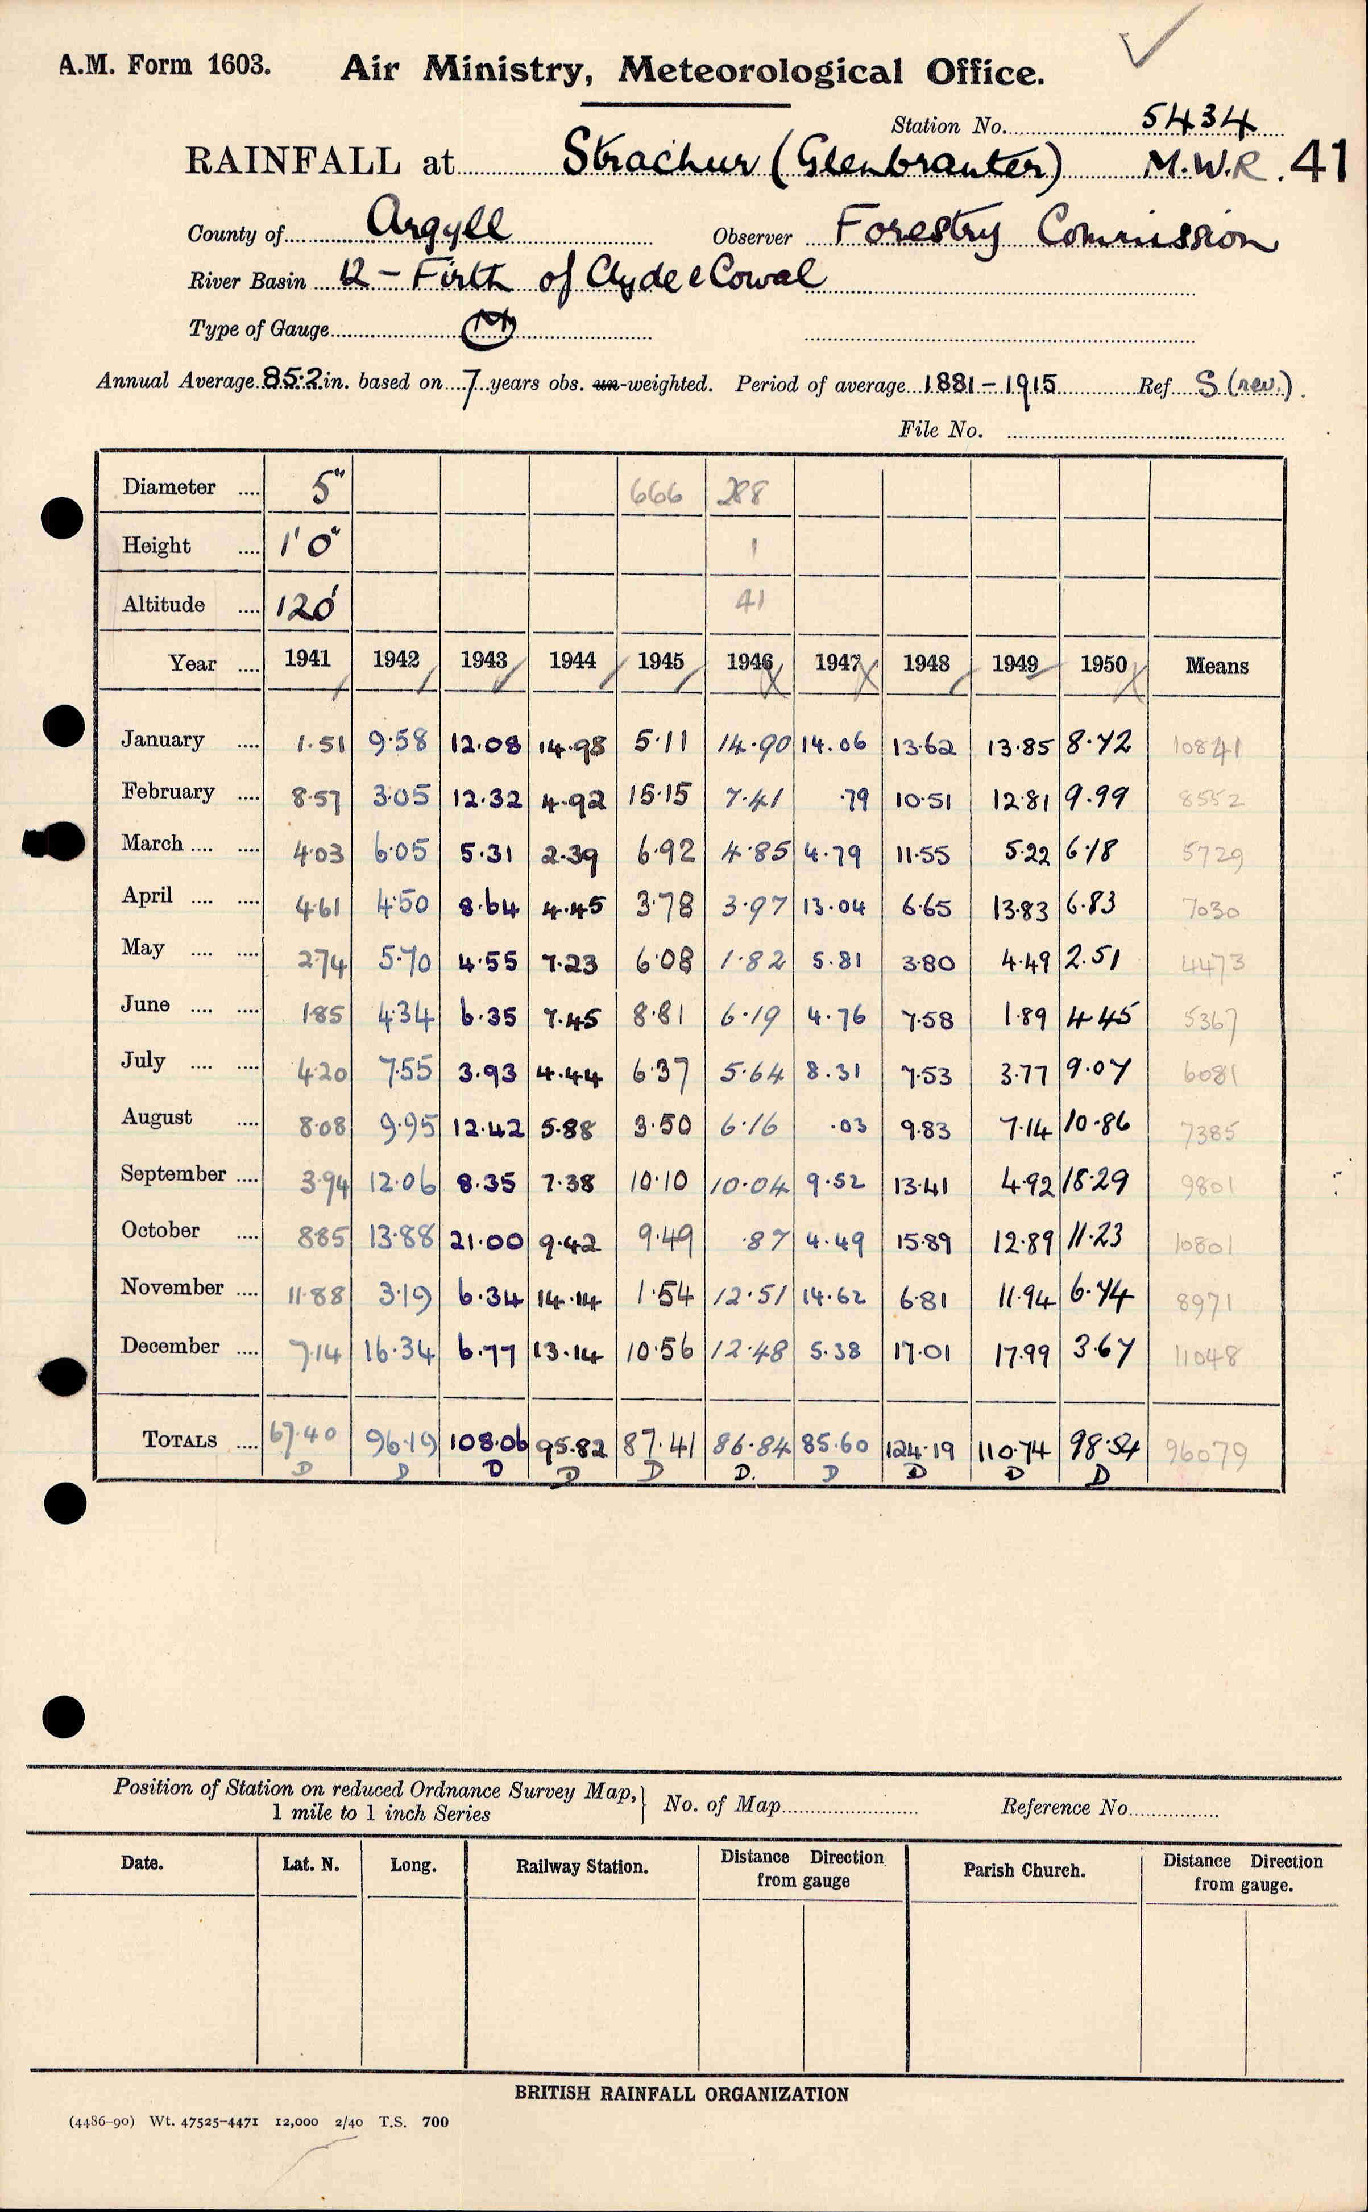 A.M. Form 1603. Air Ministry, Meteorological Office.
Station No. 5434
RAINFALL at Strachur (Glenbranter) M.W.R. 41
County of Argyll Observer Forestry Commission
River Basin 12 - Firth of Clyde & Cowal
Type of Gauge M
Annual Average 85.2 in. based on 7 years obs. un-weighted. Period of average 1881-1915 Ref S (rev.).
File No.
Diameter .... 5" 666 288
Height .... 1' 0" 1
Altitude .... 120' 41
Year .... 1941 1942 1943 1944 1945 1946 1947 1948 1949 1950 Means
January .... 1.51 9.58 12.08 14.98 5.11 14.90 14.06 13.62 13.85 8.72 10841
February .... 8.57 3.05 12.32 4.92 15.15 7.41 .79 10.51 12.81 9.99 8552
March .... .... 4.03 6.05 5.31 2.39 6.92 4.85 4.79 11.55 5.22 6.18 5729
April .... .... 4.61 4.50 8.64 4.45 3.78 3.97 13.04 6.65 13.83 6.83 7030
May .... .... 2.74 5.70 4.55 7.23 6.08 1.82 5.81 3.80 4.49 2.51 4473
June .... .... 1.85 4.34 6.35 7.45 8.81 6.19 4.76 7.58 1.89 4.45 5367
July .... .... 4.20 7.55 3.93 4.44 6.37 5.64 8.31 7.53 3.77 9.07 6081
August .... 8.08 9.95 12.42 5.88 3.50 6.16 .03 9.83 7.14 10.86 7385
September .... 3.94 12.06 8.35 7.38 10.10 10.04 9.52 13.41 4.92 18.29 9801
October .... 8.85 13.88 21.00 9.42 9.49 .87 4.49 15.89 12.89 11.23 10801
November .... 11.88 3.19 6.34 14.14 1.54 12.51 14.62 6.81 11.94 6.74 8971
December .... 7.14 16.34 6.77 13.14 10.56 12.48 5.38 17.01 17.99 3.67 11048
TOTALS .... 67.40 96.19 108.06 95.82 87.41 86.84 85.60 124.19 110.74 98.54 96079
D D D D D D. D D D D
Position of Station on reduced Ordnance Survey Map, 1 mile to 1 inch Series } No. of Map Reference No.
Date. Lat. N. Long. Railway Station. Distance Direction from gauge Parish Church. Distance Direction from gauge.
BRITISH RAINFALL ORGANIZATION
(4486-90) Wt. 47525-4471 12,000 2/40 T.S. 700